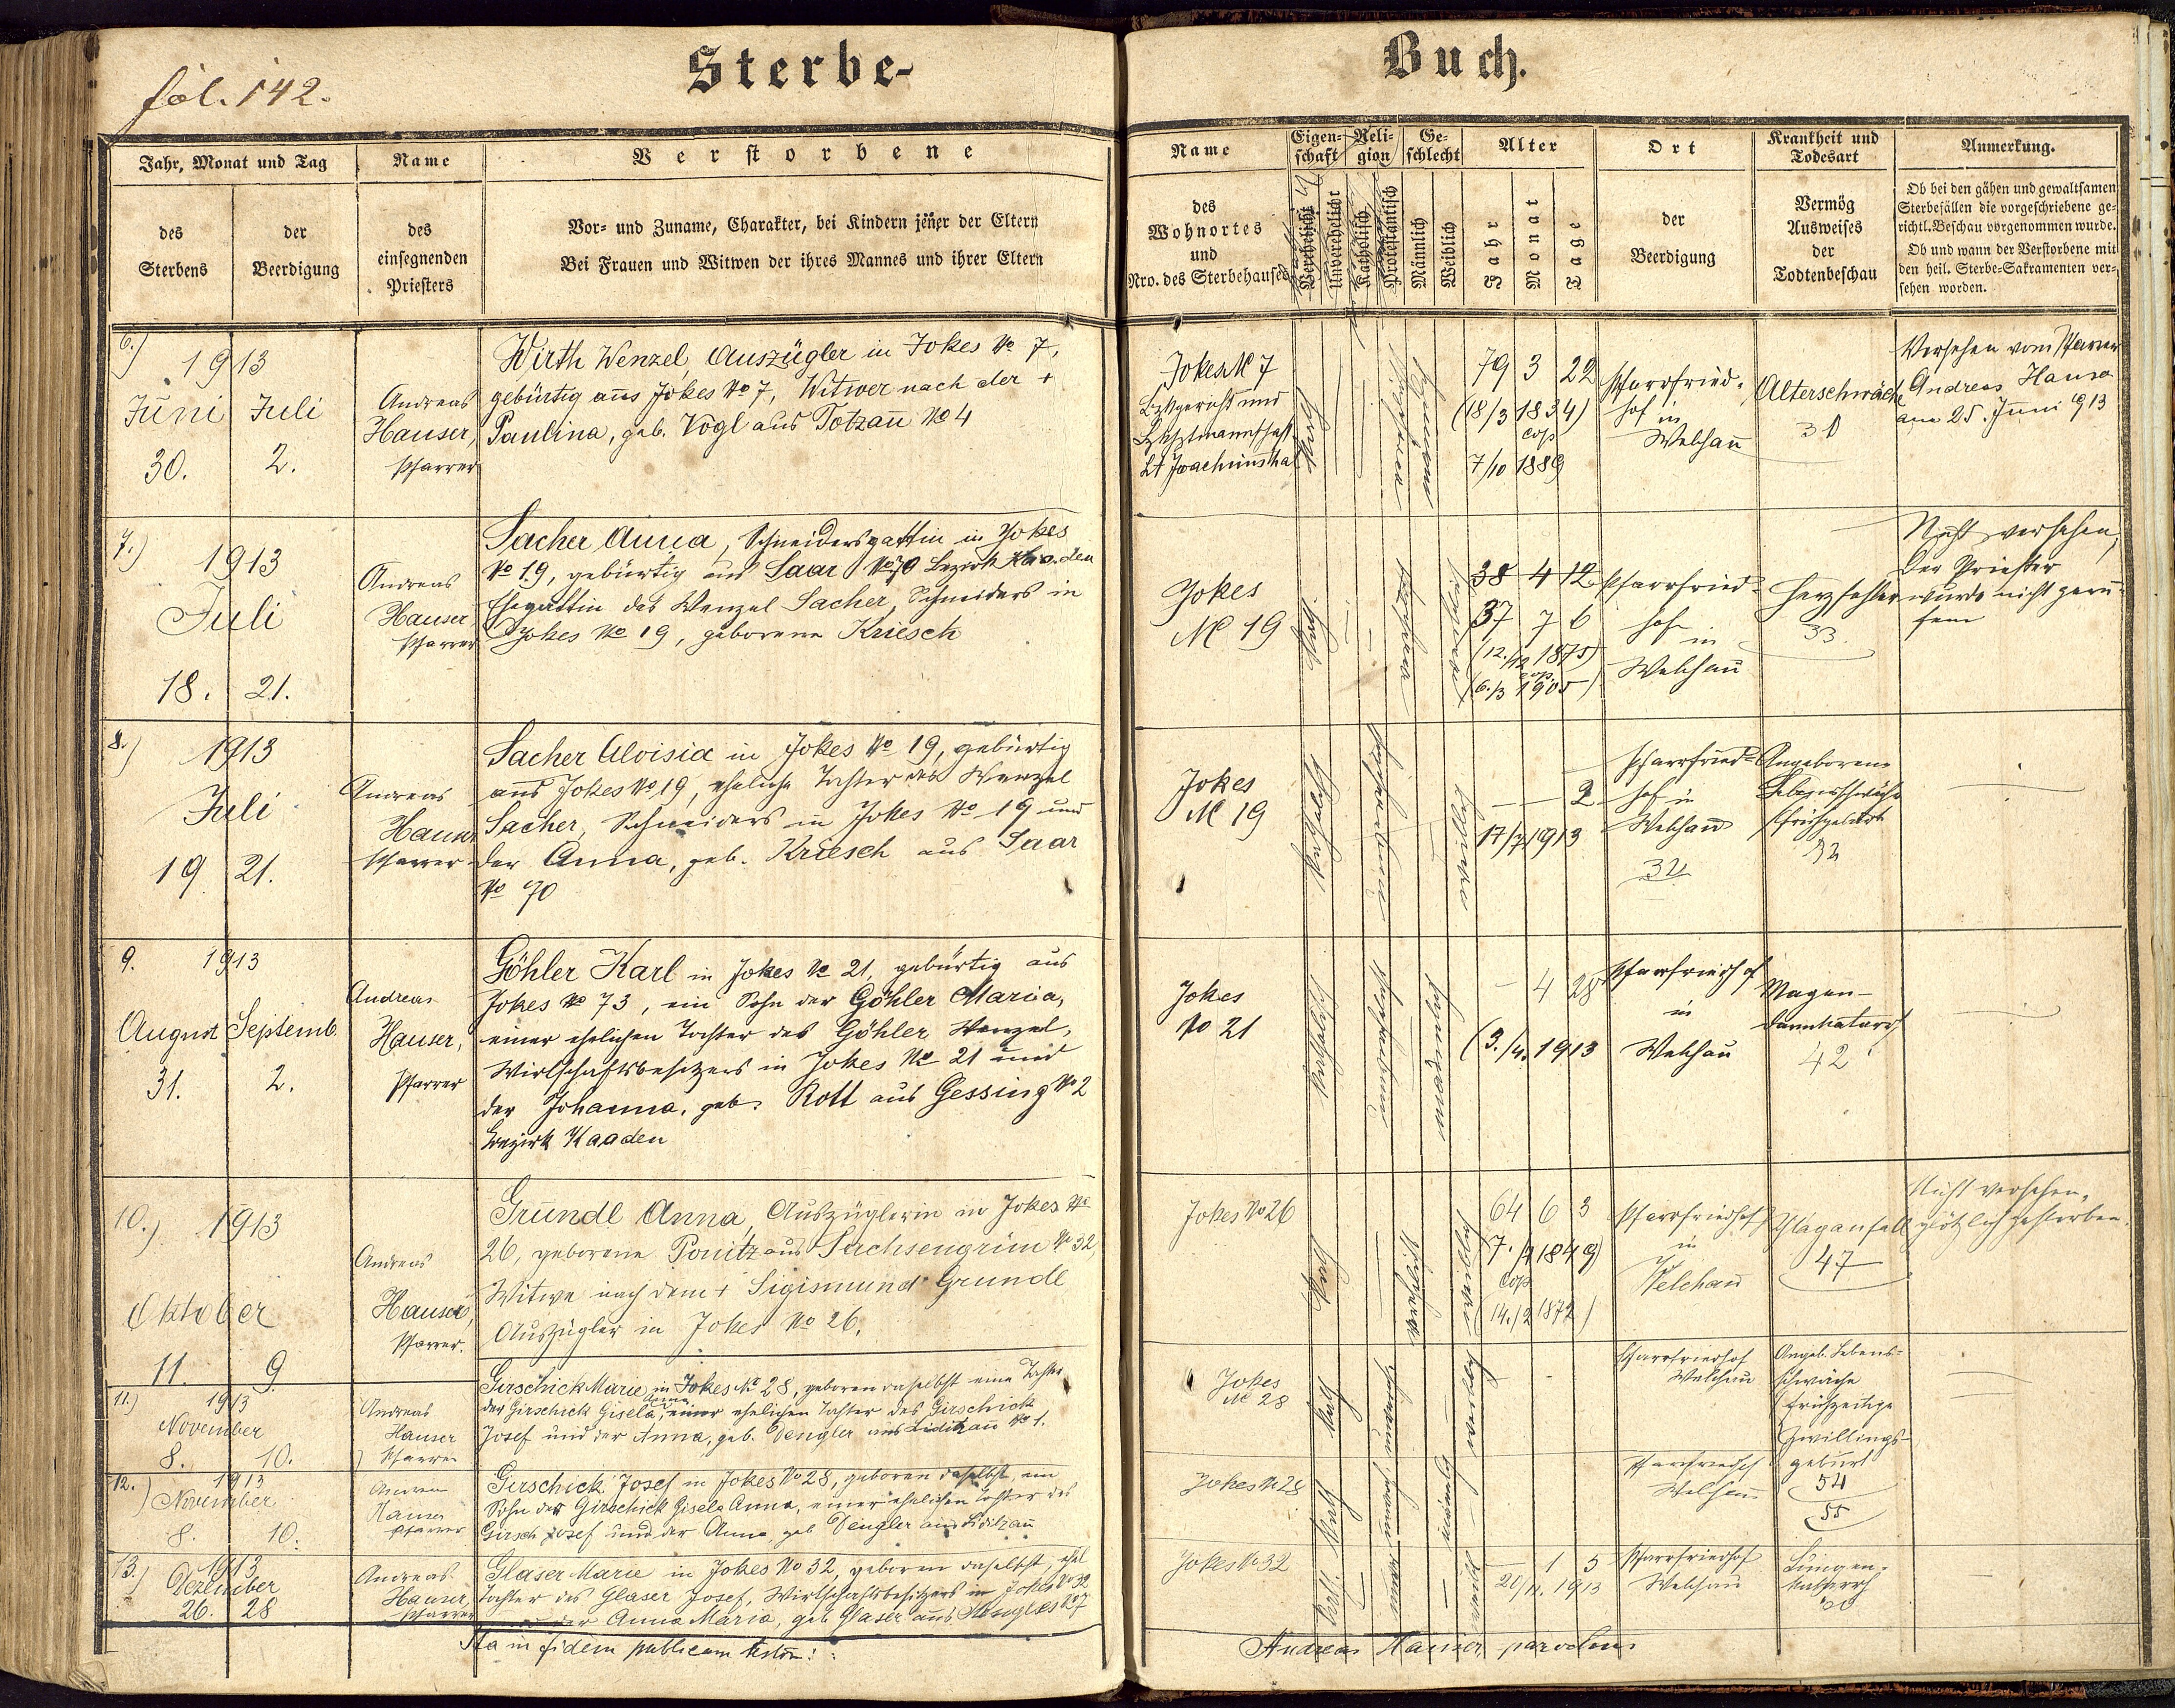 fol. 142.
Sterbe-
Buch.
Jahr, Monat und Tag
Name
Verstorbene
des Sterbens
der Beerdigung
des einsegnenden Priesters
Vor- und Zuname, Charakter, bei Kindern jener der Eltern
Bei Frauen und Witwen der ihres Mannes und ihrer Eltern
Name
Eigen-
schaft
Reli-
gion
Ge-
schlecht
Alter
Ort
Krankheit und
Todesart
Anmerkung.
des
Wohnortes
und
Nro. des Sterbehauses
Verehelicht
Unverehelicht
Katholisch
Protestantisch
Männlich
Weiblich
Jahr
Monat
Tage
der
Beerdigung
Vermög
Ausweises
der
Todtenbeschau
Ob bei den gähen und gewaltsamen
Sterbefällen die vorgeschriebene ge-
richtl. Beschau vorgenommen wurde.
Ob und wann der Verstorbene mit
den heil. Sterbe-Sakramenten ver-
sehen worden.
6.)
1913
Juni Juli
30. 2.
Andreas
Hauser,
Pfarrer
Wirth Wenzel, Auszügler in Jokes No 7,
gebürtig aus Jokes No 7, Witwer nach der +
Paulina, geb. Vogl aus Totzau No 4
Jokes No 7
Bzkgericht und
Bzkhptmannschaft
St Joachimsthal
79 3 22
(18/3 1834)
cop
7/10 1889
Pfarrfried-
hof in
Welchau
Alterschwäche
31
Versehen vom Pfarrer
Andreas Hauser
am 25. Juni 1913
7.)
1913
Juli
18. 21.
Andreas
Hauser,
Pfarrer
Sacher Anna, Schneidersgattin in Jokes
No 19, gebürtig aus Saar No 70 Bezirk Kaaden
Ehegattin des Wenzel Sacher, Schneiders in
Jokes No 19, geborene Kriesch
Jokes
No 19
38 4 12
37 7 6
(12./12 1875)
cop.
(6./3 1905)
Pfarrfried-
hof
in
Welchau
Herzfehler
33
Nicht versehen,
Der Priester
wurde nicht geru-
fen
8.)
1913
Juli
19 21.
Andreas
Hauser
Pfarrer
Sacher Aloisia in Jokes No 19, gebürtig
aus Jokes No 19, eheliche Tochter des Wenzel
Sacher, Schneiders in Jokes No 19 und
der Anna, geb. Kriesch aus Saar
No 70
Jokes
No 19
2
17/7 1913
Pfarrfried-
hof in
Welchau
32
Angeborene
Lebensschwäche
Frühgeburt
32
9.
1913
August Septemb.
31. 2.
Andreas
Hauser,
Pfarrer
Göhler Karl in Jokes No 21, gebürtig aus
Jokes No 73, ein Sohn der Göhler Maria,
einer ehelichen Tochter des Göhler Wenzel,
Wirtschaftsbesitzers in Jokes No 21 und
der Johanna, geb. Rott aus Gessing No 2
Bezirk Kaaden
Jokes
No 21
4 28
(3./4. 1913
Pfarrfriedhof
in
Welchau
Magen-
darmkatarrh
42
10.)
1913
Oktober
11. 9.
Andreas
Hauser,
Pfarrer.
Gründl Anna, Auszüglerin in Jokes No
26, geborene Ponitz aus Sachsengrün No 32,
Witwe nach dem + Sigismund Gründl
Auszügler in Jokes No 26.
Jokes No 26
64 6 3
7./4 1849)
cop
14./2 1872)
Pfarrfriedhof
in
Welchau
Schlaganfall
47
Nicht versehen,
plötzlich gestorben.
11.)
1913
November
8. 10.
Andreas
Hauser
Pfarrer
Girschick Marie in Jokes No 28, geboren daselbst eine Tochter
der Girschick Gisela Anna, einer ehelichen Tochter des Girschick
Josef und der Anna, geb. Dengler aus Liditzau No 1.
Jokes
No 28
Pfarrfriedhof
Welchau
Angeb. Lebens-
schwäche
(frühzeitige
Zwillings-
geburt
54
55
12.)
1913
November
8. 10.
Andreas
Hauser
Pfarrer
Girschick Josef in Jokes No 28, geboren daselbst, ein
Sohn der Girschick Gisela Anna, einer ehelichen Tochter des
Girsch Josef und der Anna, geb Dengler aus Liditzau
Jokes No 28
Pfarrfriedhof
Welchau
13.)
1913
Dezember
26. 28
Andreas
Hauser,
Pfarrer
Glaser Marie in Jokes No 32, geboren daselbst, ehel
Tochter des Glaser Josef, Wirtschaftsbesitzers in Jokes No 32
und der Anna Maria, geb. Glaser aus No 7
Jokes No 32
1 5
20/11. 1913
Pfarrfriedhof
Welchau
Lungen-
katarrh
60
Ita in fidem publicam testor:
Andreas Hauser, parochus